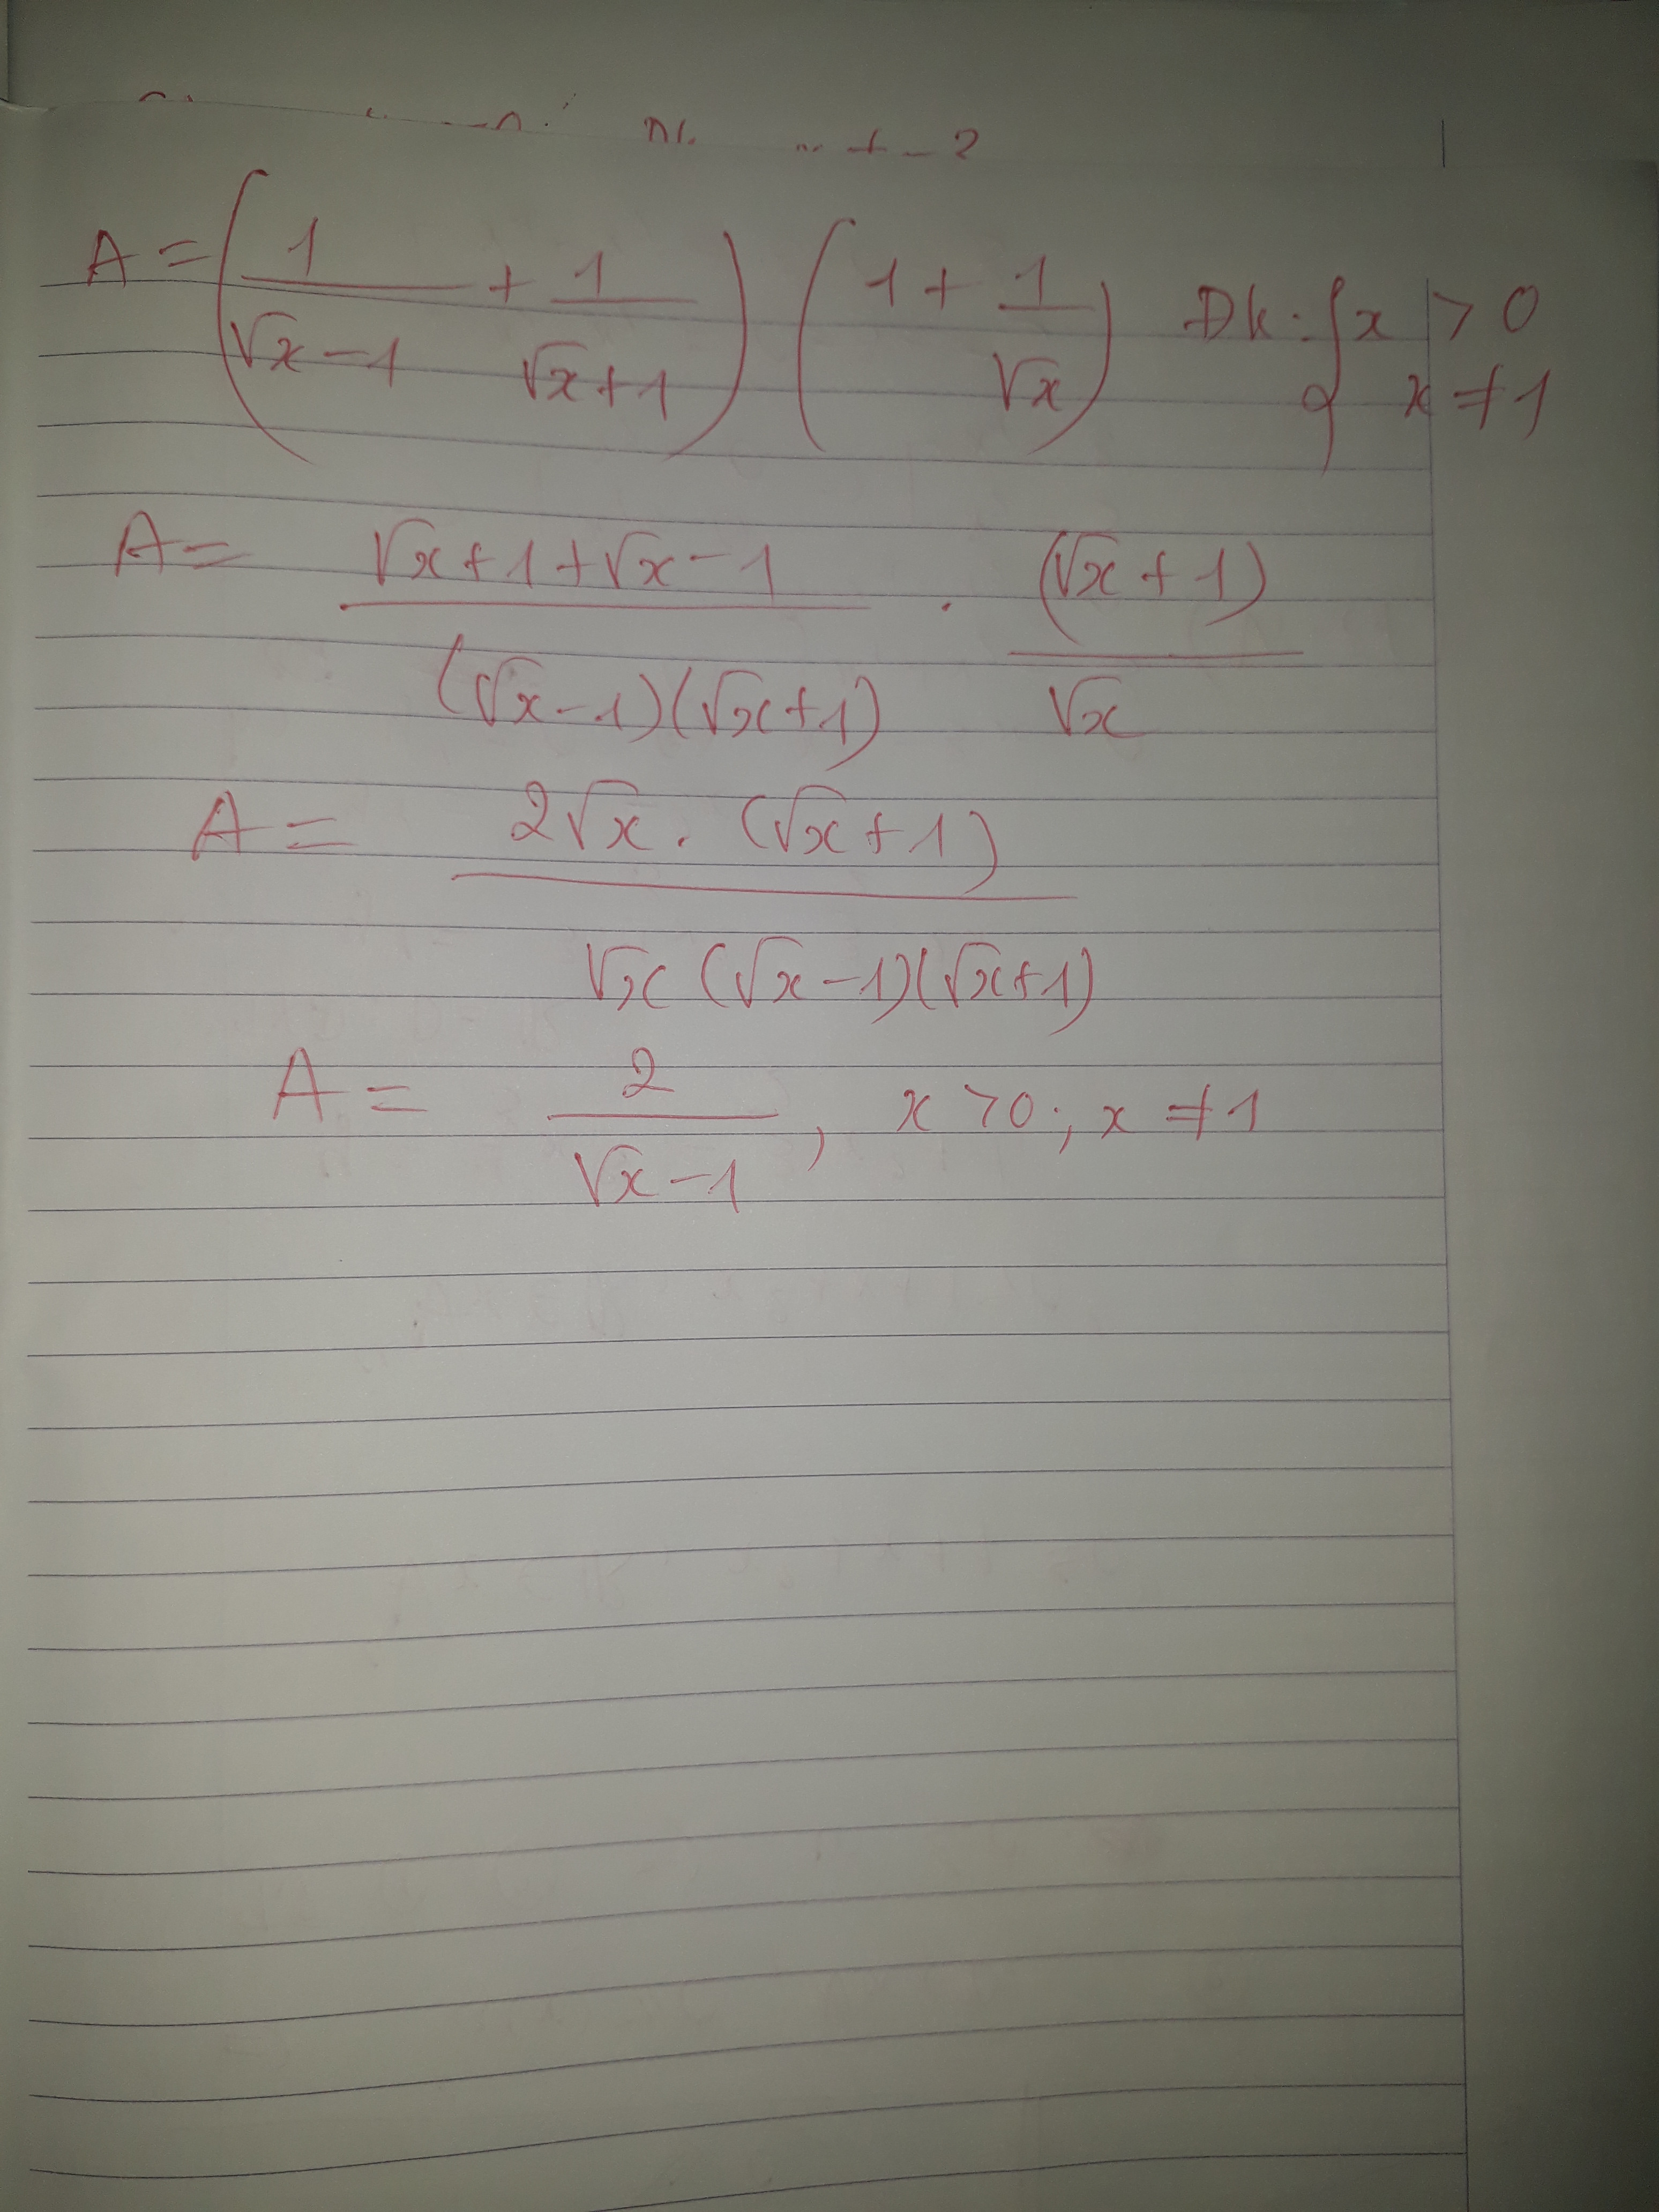 A = (1/(√x-1) + 1/(√x+1)) (1 + 1/√x) Đk: { x > 0
x ≠ 1
A = (√x+1+√x-1)/((√x-1)(√x+1)) . (√x+1)/√x
A = (2√x . (√x+1))/(√x(√x-1)(√x+1))
A = 2/(√x-1), x > 0 ; x ≠ 1